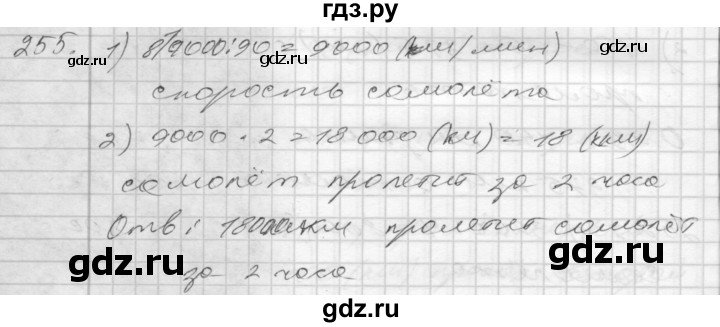 гдз.ру
255. 1) 819000:90 = 9000 (км/мин)
gdz.ru gdz.ru gdz.ru
скорость самолёта
2) 9000 · 2 = 18 000 (км) = 18 (км)
самолёт пролетит за 2 часа
Отв: 18000 км пролетит самолёт
gdz.ru gdz.ru
за 2 часа
gdz.ru gdz.ru
gdz.ru